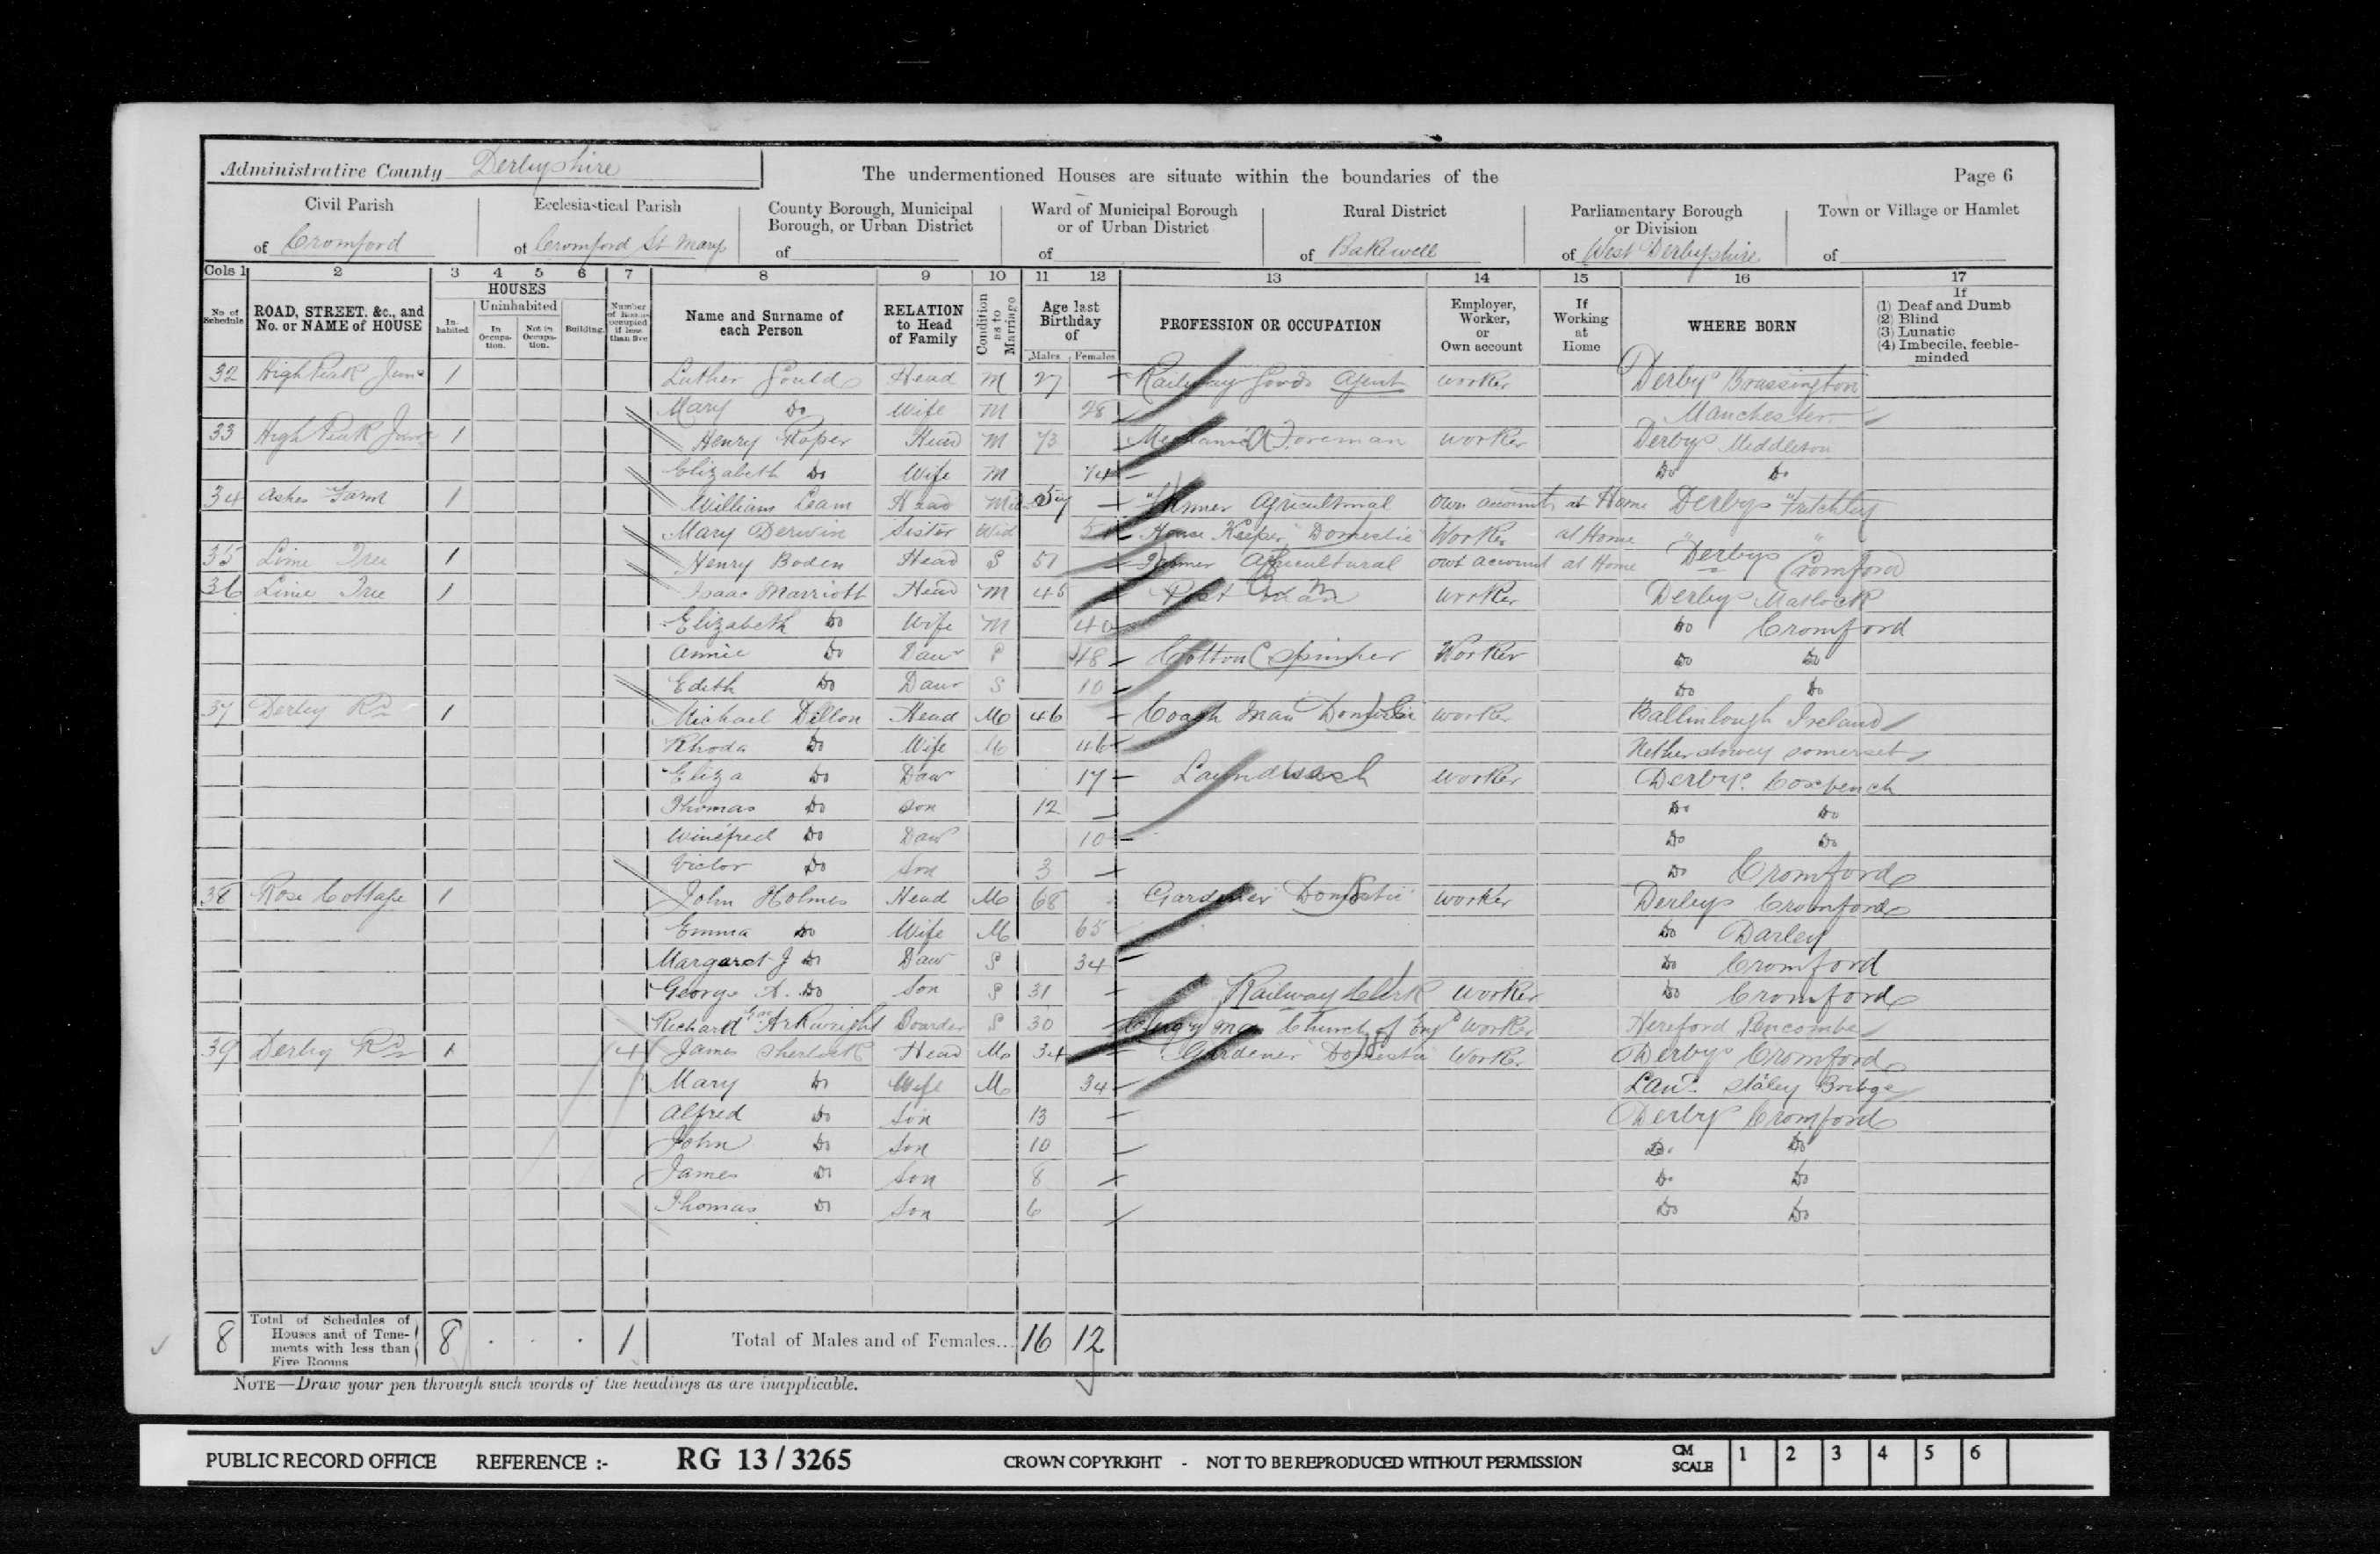 Administrative County Derbyshire
The undermentioned Houses are situate within the boundaries of the
Page 6
Civil Parish of Cromford
Ecclesiastical Parish of Cromford St Marys
County Borough, Municipal Borough, or Urban District of
Ward of Municipal Borough or of Urban District of
Rural District of Bakewell
Parliamentary Borough or Division of West Derbyshire
Town or Village or Hamlet of
Cols 1 2 3 4 5 6 7 8 9 10 11 12 13 14 15 16 17
No. of Schedule
ROAD, STREET, &c., and No. or NAME of HOUSE
HOUSES
In-habited
Uninhabited
In Occupa-tion.
Not in Occupa-tion.
Building.
Number of Rooms occupied if less than five
Name and Surname of each Person
RELATION to Head of Family
Condition as to Marriage
Age last Birthday of
Males Females
PROFESSION OR OCCUPATION
Employer, Worker, or Own account
If Working at Home
WHERE BORN
If
(1) Deaf and Dumb
(2) Blind
(3) Lunatic
(4) Imbecile, feeble-minded
32 High Peak Junc 1 Luther Gould Head M 27 Railway Goods Agent worker Derbys Brassington
Mary Do Wife M 28 Manchester
33 High Peak Junc 1 Henry Roper Head M 73 Mechanic Foreman worker Derbys Middleton
Elizabeth Do Wife M 74 Do Do
34 Ashes Farm 1 William Leam Head 57 Farmer Agricultural Own account at Home Derbys Fritchley
Mary Derwin Sister Wid House Keeper Domestic Worker at Home " "
35 Lime Tree 1 Henry Boden Head S 51 Farmer Agricultural own account at Home Derbys Cromford
36 Lime Tree 1 Isaac Marriott Head M 45 Post Man worker Derbys Matlock
Elizabeth Do Wife M 40 Do Cromford
Annie Do Daur S 18 Cotton Spinner Worker Do Do
Edith Do Daur S 10 Do Do
37 Derby Rd 1 Michael Dillon Head M 46 Coach man Domestic worker Ballinlough Ireland
Rhoda Do Wife M 46 Nether stowey somerset
Eliza Do Daur 17 worker Derbys. Coxbench
Thomas Do son 12 Do Do
Winefred Do Daur 10 Do Do
Victor Do Son 3 Do Cromford
38 Rose Cottage 1 John Holmes Head M 68 Gardener Domestic worker Derbys Cromford
Emma Do Wife M 65 Do Darley
Margaret J Do Daur S 34 Do Cromford
George A. Do Son S 31 Railway Clerk worker Do Cromford
Richard Arkwright Boarder S 30 Clergyman Church of Engd worker Hereford Pencombe
39 Derby Rd 1 4 James Sherlock Head M 34 Gardener Domestic Worker Derbys Cromford
Mary Do Wife M 34 Lancs. Staley Bridge
Alfred Do Son 13 Derbys Cromford
John Do Son 10 Do Do
James Do Son 8 Do Do
Thomas Do Son 6 Do Do
8 Total of Schedules of Houses and of Tene-ments with less than Five Rooms 8 . . . 1 Total of Males and of Females... 16 12
NOTE—Draw your pen through such words of the headings as are inapplicable.
PUBLIC RECORD OFFICE REFERENCE :- RG 13 / 3265 CROWN COPYRIGHT - NOT TO BE REPRODUCED WITHOUT PERMISSION CM SCALE 1 2 3 4 5 6